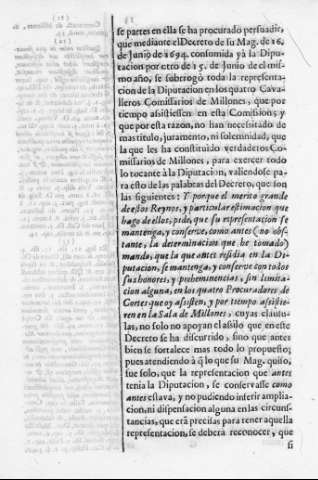 se partes en ella se ha procurado persuadir,
que mediante el Decreto de su Mag. de 16.
de Junio de 1694. consumida yà la Dipu-
tacion por otro de 15. de Junio de el mis-
mo año, se subrogò toda la representa-
cion de la Diputacion en los quatro Cava-
lleros Comissarios de Millones, que por
tiempo assistiessen en esta Comision; y
que por esta razon, no han necesitado de
mas titulo, juramento, ni solemnidad, que
la que les ha constituido verdaderos Co-
missarios de Millones, para exercer todo
lo tocante à la Diputacion, valiendose pa-
ra esto de las palabras del Decreto, que son
las siguientes: Y porque el merito grande
de estos Reynos, y particular estimacion que
hago de ellos, pide, que su representacion se
mantenga, y conserve, como antes (no obs-
tante, la determinacion que he tomado)
mando, que la que antes residia en la Di-
putacion, se mantenga, y conserve con todos
sus honores, y prehemenencias, sin limita-
cion alguna, en los quatro Procuradores de
Cortes que oy assisten, y por tiempo assistie-
ren en la Sala de Millones, cuyas clausu-
las, no solo no apoyan el assilo que en este
Decreto se ha discurrido, sino que antes
bien se fortalece mas todo lo propuesto;
pues atendiendo à q̃ lo que su Mag. quiso,
fue solo, que la representacion que antes
tenia la Diputacion, se conservasse como
antes estava, y no pudiendo inferir amplia-
cion, ni dispensacion alguna en las circuns-
tancias, que erà precisas para tener aquella
representacion, se deberà reconocer, que
si